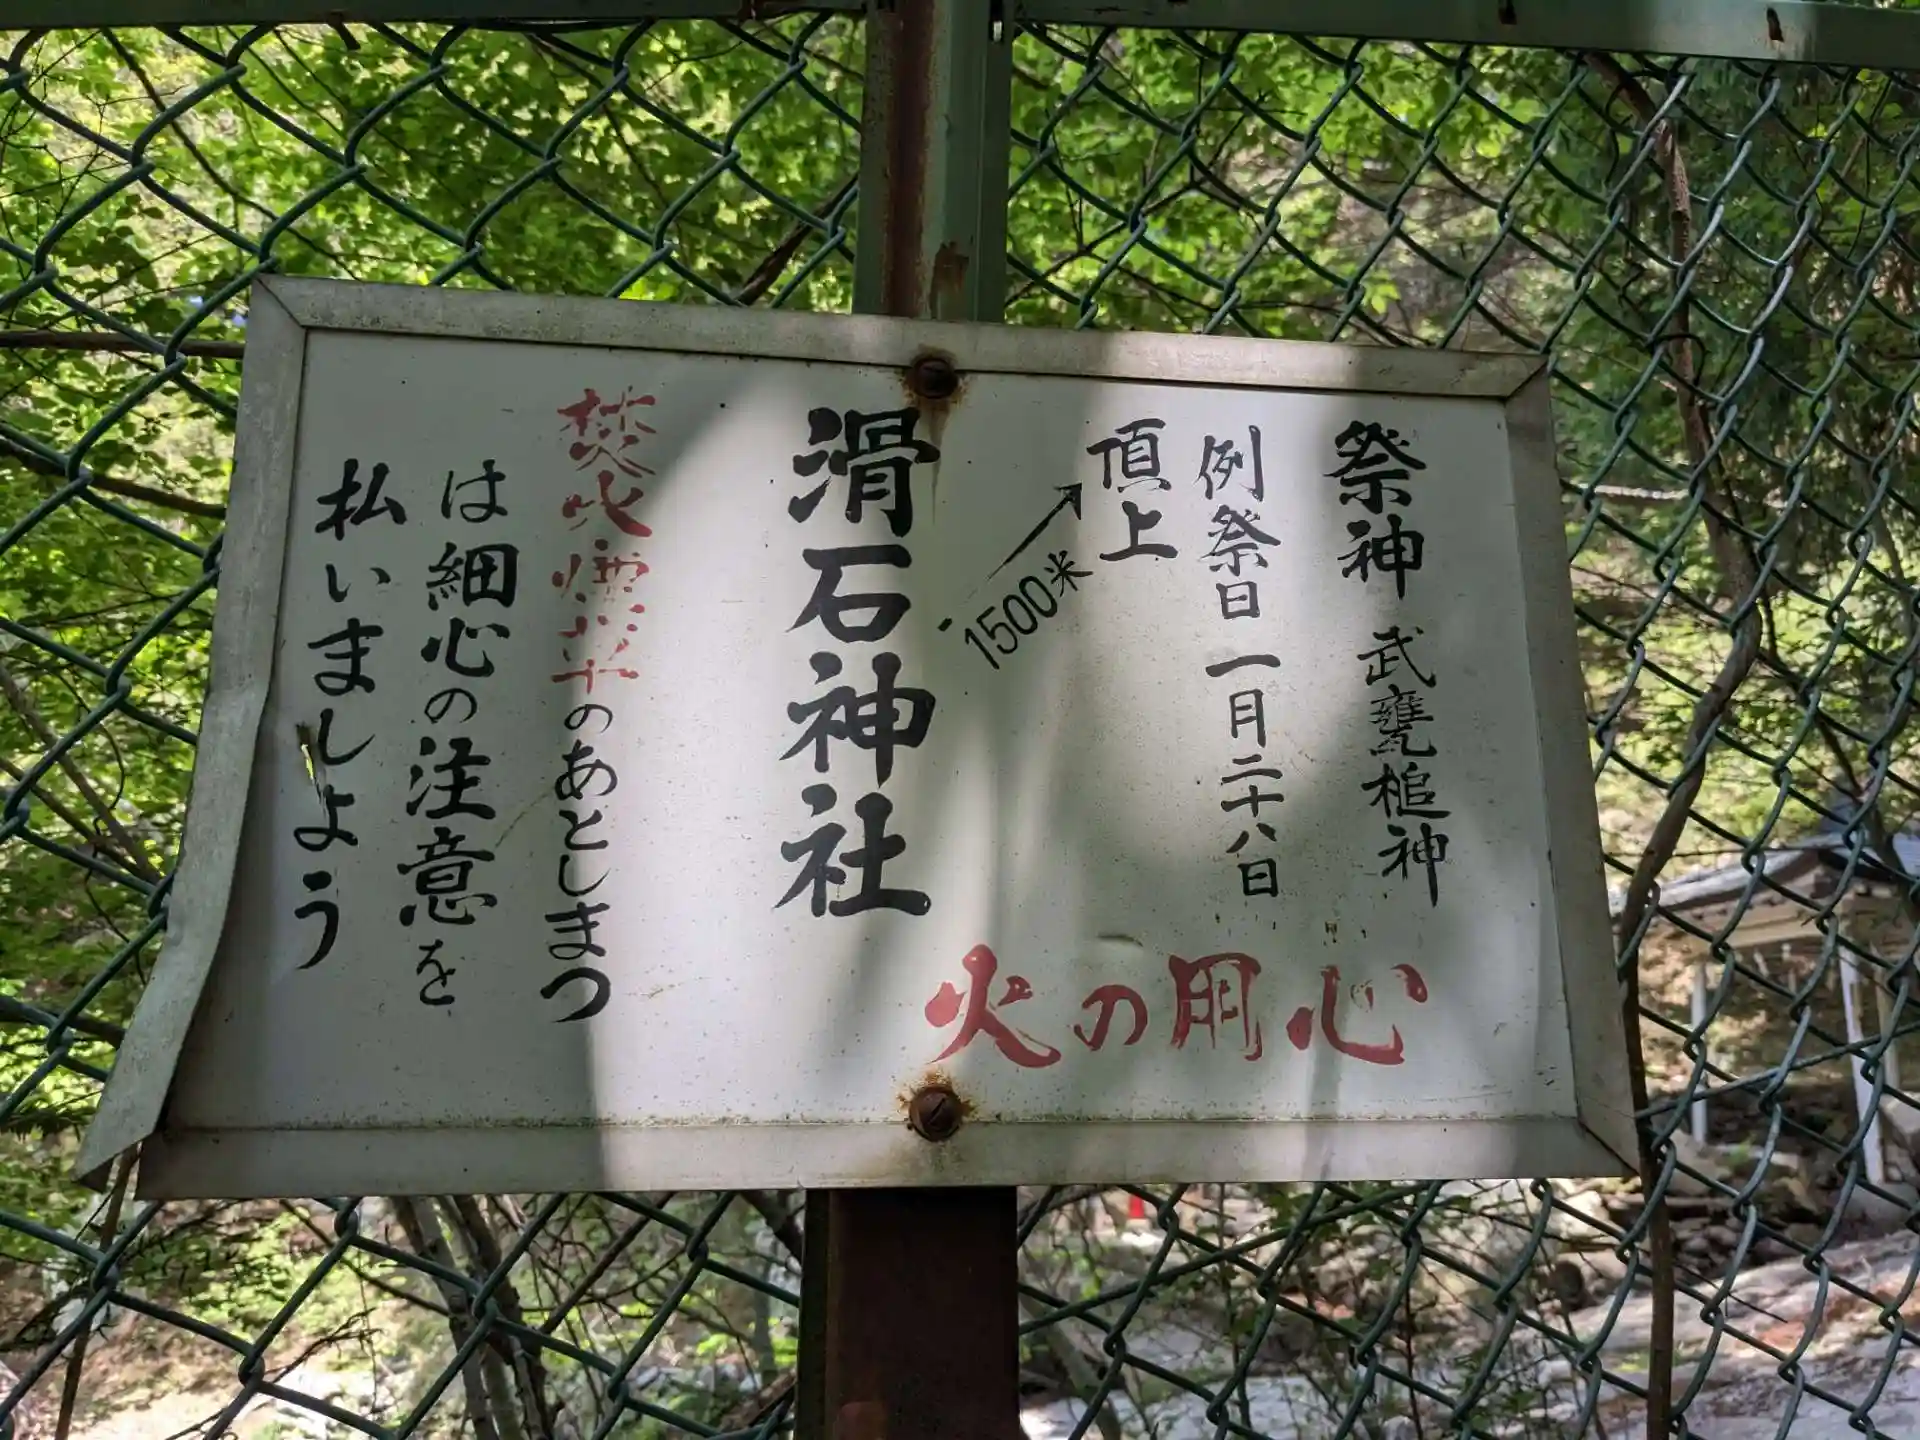 祭神 武甕槌神
例祭日 一月二十八日
頂上
1500米
滑石神社
火の用心
焚火煙草のあとしまつ
は細心の注意を
払いましょう